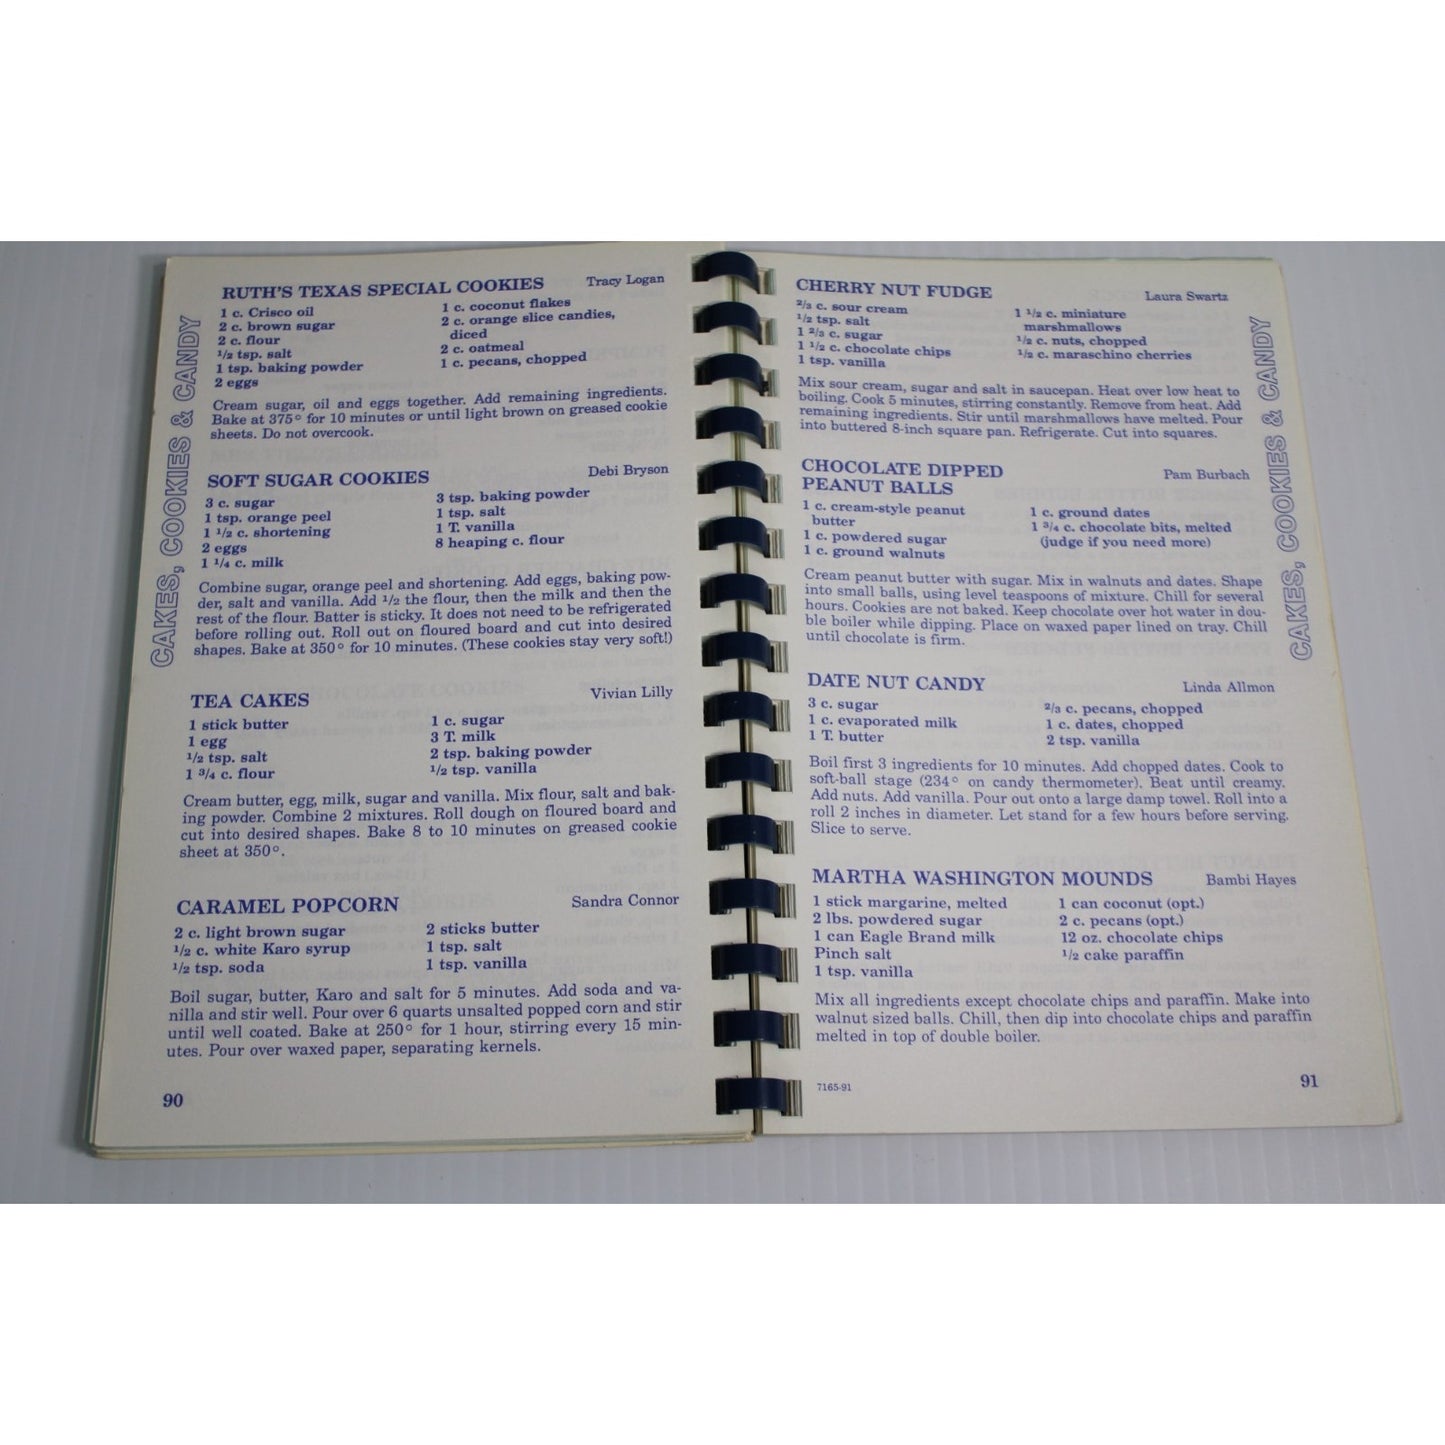 CAKES, COOKIES & CANDY
RUTH'S TEXAS SPECIAL COOKIES Tracy Logan
1 c. Crisco oil
2 c. brown sugar
2 c. flour
1/2 tsp. salt
1 tsp. baking powder
2 eggs
1 c. coconut flakes
2 c. orange slice candies,
diced
2 c. oatmeal
1 c. pecans, chopped
Cream sugar, oil and eggs together. Add remaining ingredients.
Bake at 375° for 10 minutes or until light brown on greased cookie
sheets. Do not overcook.
SOFT SUGAR COOKIES Debi Bryson
3 c. sugar
1 tsp. orange peel
1 1/2 c. shortening
2 eggs
1 1/4 c. milk
3 tsp. baking powder
1 tsp. salt
1 T. vanilla
8 heaping c. flour
Combine sugar, orange peel and shortening. Add eggs, baking pow-
der, salt and vanilla. Add 1/2 the flour, then the milk and then the
rest of the flour. Batter is sticky. It does not need to be refrigerated
before rolling out. Roll out on floured board and cut into desired
shapes. Bake at 350° for 10 minutes. (These cookies stay very soft!)
TEA CAKES Vivian Lilly
1 stick butter
1 egg
1/2 tsp. salt
1 3/4 c. flour
1 c. sugar
3 T. milk
2 tsp. baking powder
1/2 tsp. vanilla
Cream butter, egg, milk, sugar and vanilla. Mix flour, salt and bak-
ing powder. Combine 2 mixtures. Roll dough on floured board and
cut into desired shapes. Bake 8 to 10 minutes on greased cookie
sheet at 350°.
CARAMEL POPCORN Sandra Connor
2 c. light brown sugar
1/2 c. white Karo syrup
1/2 tsp. soda
2 sticks butter
1 tsp. salt
1 tsp. vanilla
Boil sugar, butter, Karo and salt for 5 minutes. Add soda and va-
nilla and stir well. Pour over 6 quarts unsalted popped corn and stir
until well coated. Bake at 250° for 1 hour, stirring every 15 min-
utes. Pour over waxed paper, separating kernels.
90
CHERRY NUT FUDGE Laura Swartz
2/3 c. sour cream
1/2 tsp. salt
1 2/3 c. sugar
1 1/2 c. chocolate chips
1 tsp. vanilla
1 1/2 c. miniature
marshmallows
1/2 c. nuts, chopped
1/2 c. maraschino cherries
Mix sour cream, sugar and salt in saucepan. Heat over low heat to
boiling. Cook 5 minutes, stirring constantly. Remove from heat. Add
remaining ingredients. Stir until marshmallows have melted. Pour
into buttered 8-inch square pan. Refrigerate. Cut into squares.
CHOCOLATE DIPPED Pam Burbach
PEANUT BALLS
1 c. cream-style peanut
butter
1 c. powdered sugar
1 c. ground walnuts
1 c. ground dates
1 3/4 c. chocolate bits, melted
(judge if you need more)
Cream peanut butter with sugar. Mix in walnuts and dates. Shape
into small balls, using level teaspoons of mixture. Chill for several
hours. Cookies are not baked. Keep chocolate over hot water in dou-
ble boiler while dipping. Place on waxed paper lined on tray. Chill
until chocolate is firm.
DATE NUT CANDY Linda Allmon
3 c. sugar
1 c. evaporated milk
1 T. butter
2/3 c. pecans, chopped
1 c. dates, chopped
2 tsp. vanilla
Boil first 3 ingredients for 10 minutes. Add chopped dates. Cook to
soft-ball stage (234° on candy thermometer). Beat until creamy.
Add nuts. Add vanilla. Pour out onto a large damp towel. Roll into a
roll 2 inches in diameter. Let stand for a few hours before serving.
Slice to serve.
MARTHA WASHINGTON MOUNDS Bambi Hayes
1 stick margarine, melted
2 lbs. powdered sugar
1 can Eagle Brand milk
Pinch salt
1 tsp. vanilla
1 can coconut (opt.)
2 c. pecans (opt.)
12 oz. chocolate chips
1/2 cake paraffin
Mix all ingredients except chocolate chips and paraffin. Make into
walnut sized balls. Chill, then dip into chocolate chips and paraffin
melted in top of double boiler.
7165-91
91
CAKES, COOKIES & CANDY